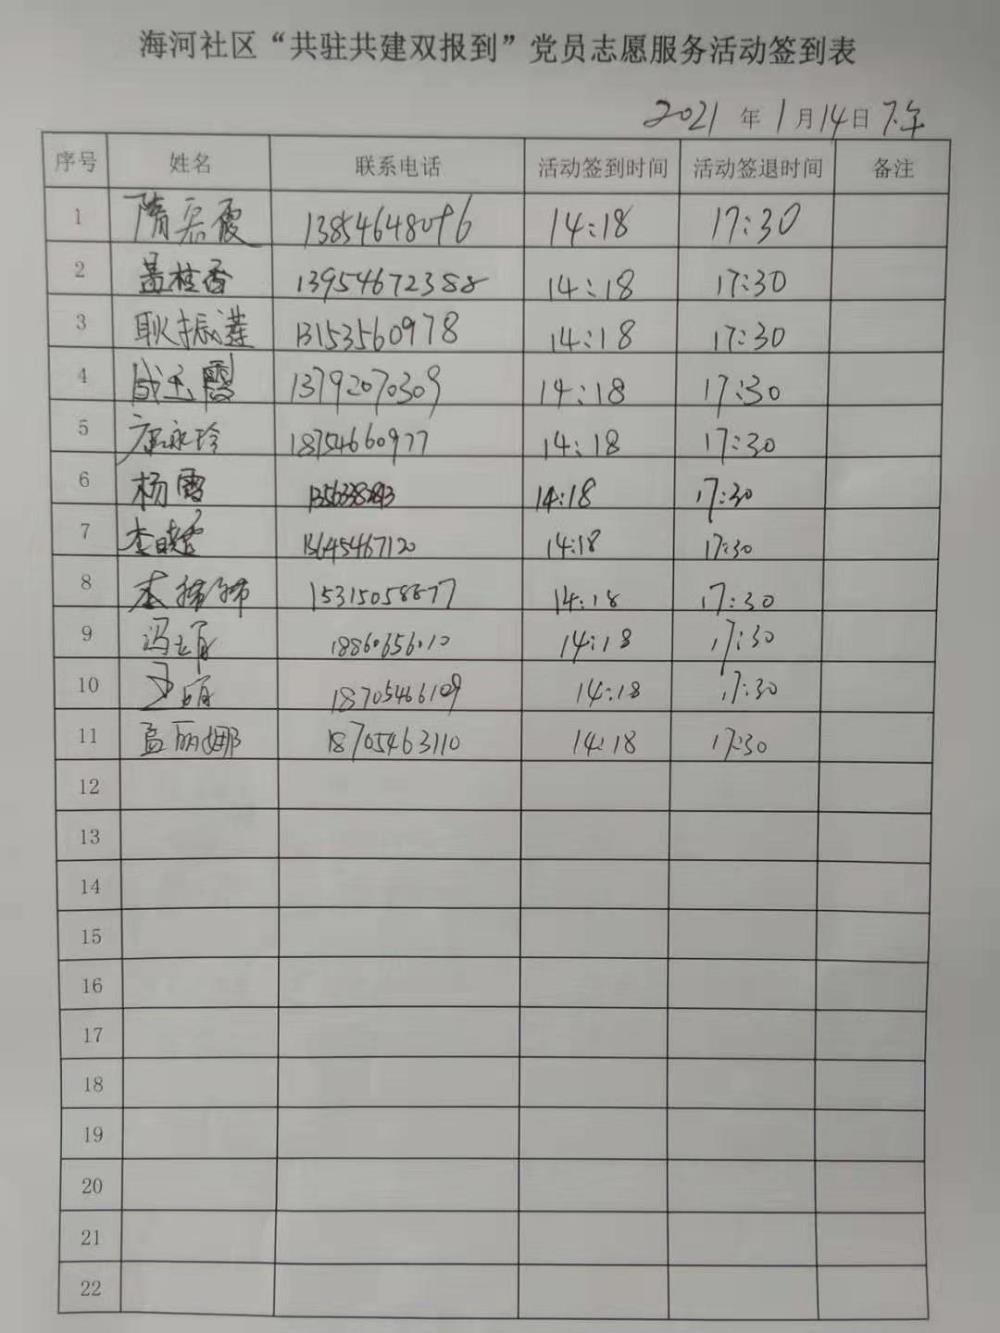 海河社区“共驻共建双报到”党员志愿服务活动签到表
2021 年 1 月 14 日 下午
序号 姓名 联系电话 活动签到时间 活动签退时间 备注
1 隋宏霞 13854648096 14:18 17:30
2 盖桂香 13954672388 14:18 17:30
3 耿振莲 13153560978 14:18 17:30
4 成玉霞 13792070309 14:18 17:30
5 康永玲 18754660977 14:18 17:30
6 杨雪 14:18 17:30
7 李晓雪 13645467120 14:18 17:30
8 李娜娜 15315058877 14:18 17:30
9 冯立娟 18860656010 14:18 17:30
10 18705466109 14:18 17:30
11 孟丽娜 18705463110 14:18 17:30
12
13
14
15
16
17
18
19
20
21
22